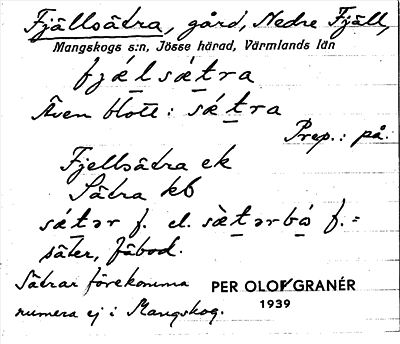 Fjällsätra, gård, Nedre Fjäll,
Mangskogs s:n, Jösse härad, Värmlands län
fjǽlsætra
Även blott: sǽtra
Prep.: på.
Fjellsätra ek
Sätra kb
sǽtər f. el. sæ̀tərbò f. =
säter, fäbod.
Sätrar förekomma
numera ej i Mangskog.
PER OLOF GRANÉR
1939